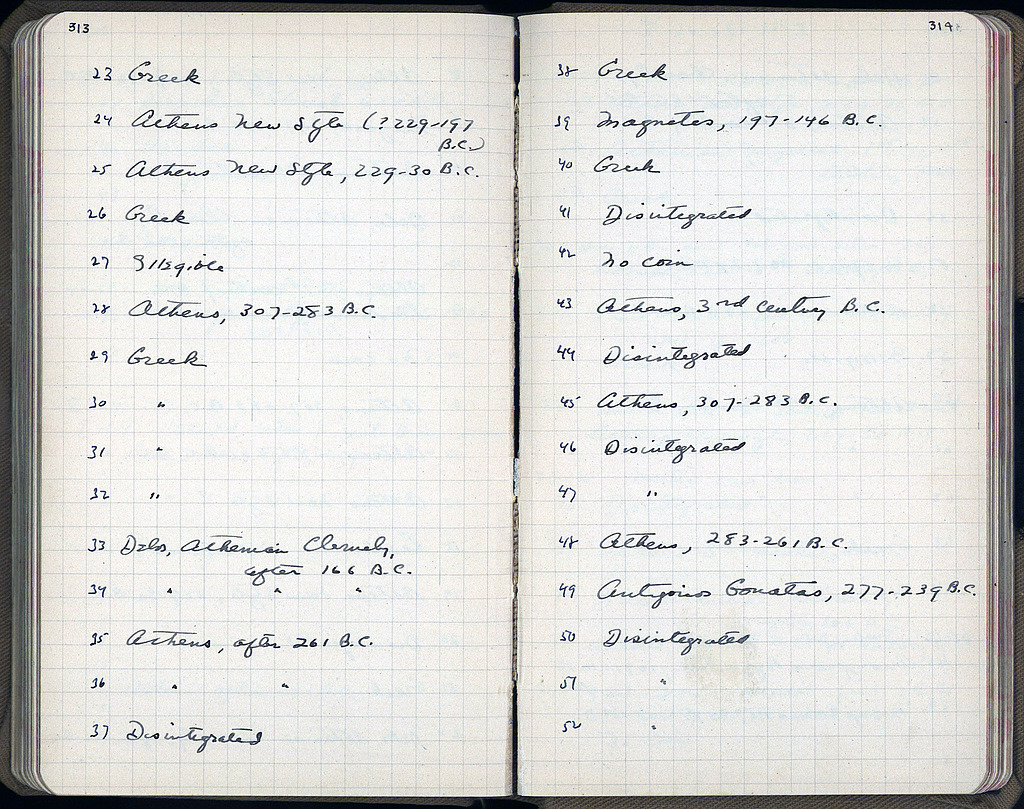 313
23 Greek
24 Athens New Style (? 229-197
B.C.)
25 Athens New Style, 229-30 B.C.
26 Greek
27 Illegible
28 Athens, 307-283 B.C.
29 Greek
30 "
31 "
32 "
33 Delos, Athenian Cleruchy,
after 166 B.C.
34 " " "
35 Athens, after 261 B.C.
36 " "
37 Disintegrated
314
38 Greek
39 Magnetes, 197-146 B.C.
40 Greek
41 Disintegrated
42 No coin
43 Athens, 3rd Century B.C.
44 Disintegrated
45 Athens, 307-283 B.C.
46 Disintegrated
47 "
48 Athens, 283-261 B.C.
49 Antigonos Gonatas, 277-239 B.C.
50 Disintegrated
51 "
52 "